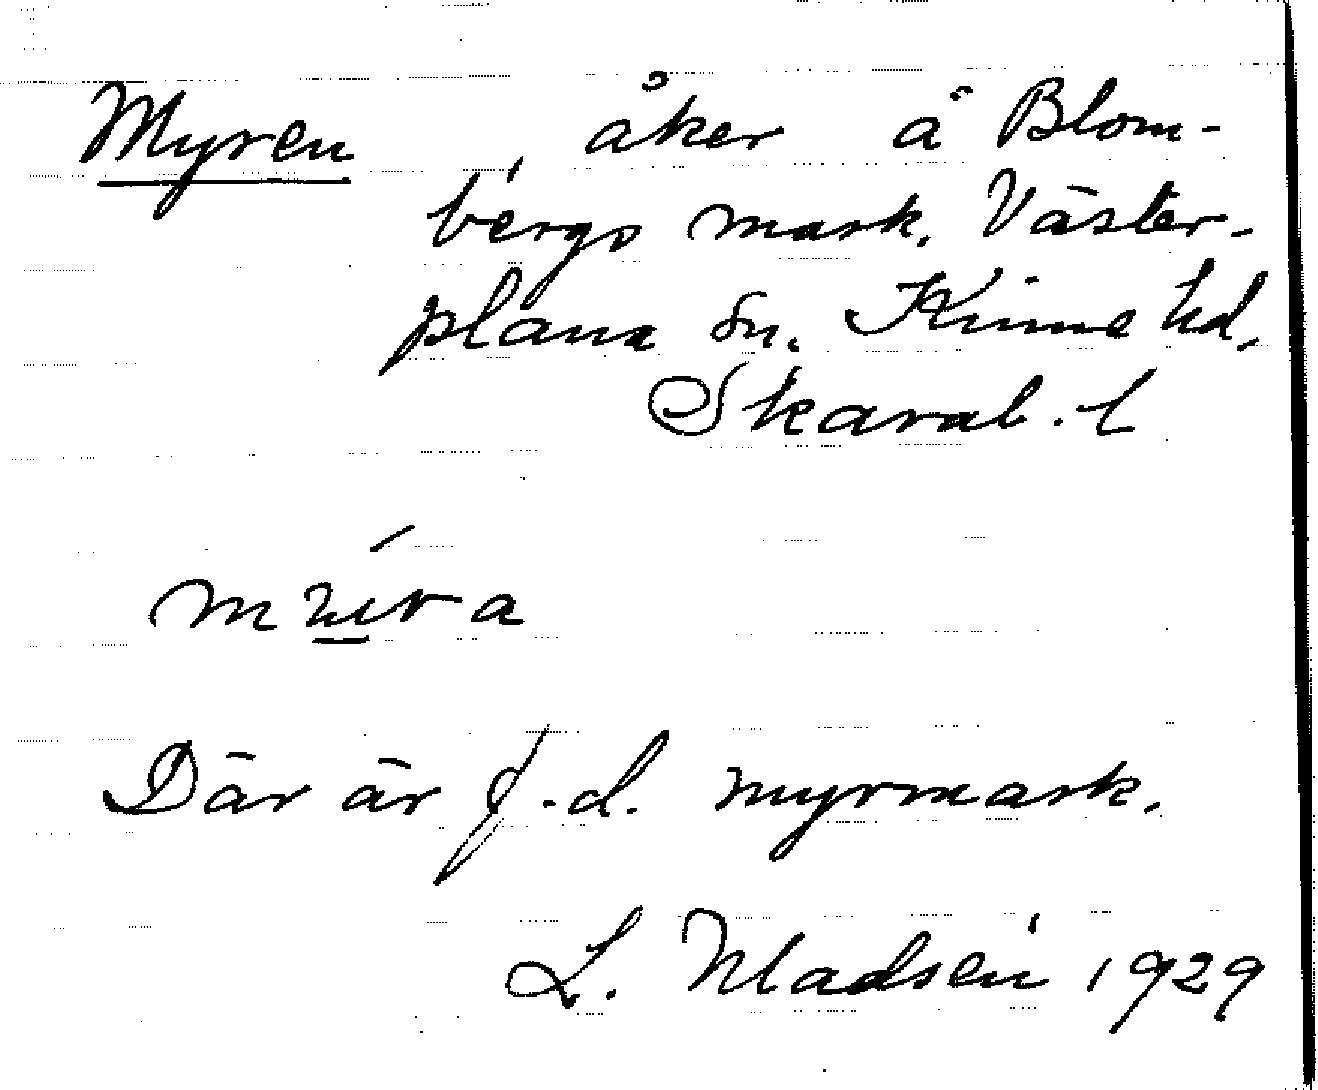 Myren, åker å Blom-
bergs mark. Väster-
plana sn. Kinne hd,
Skarab. l
Där är f.d. myrmark.
L. Madsén 1929